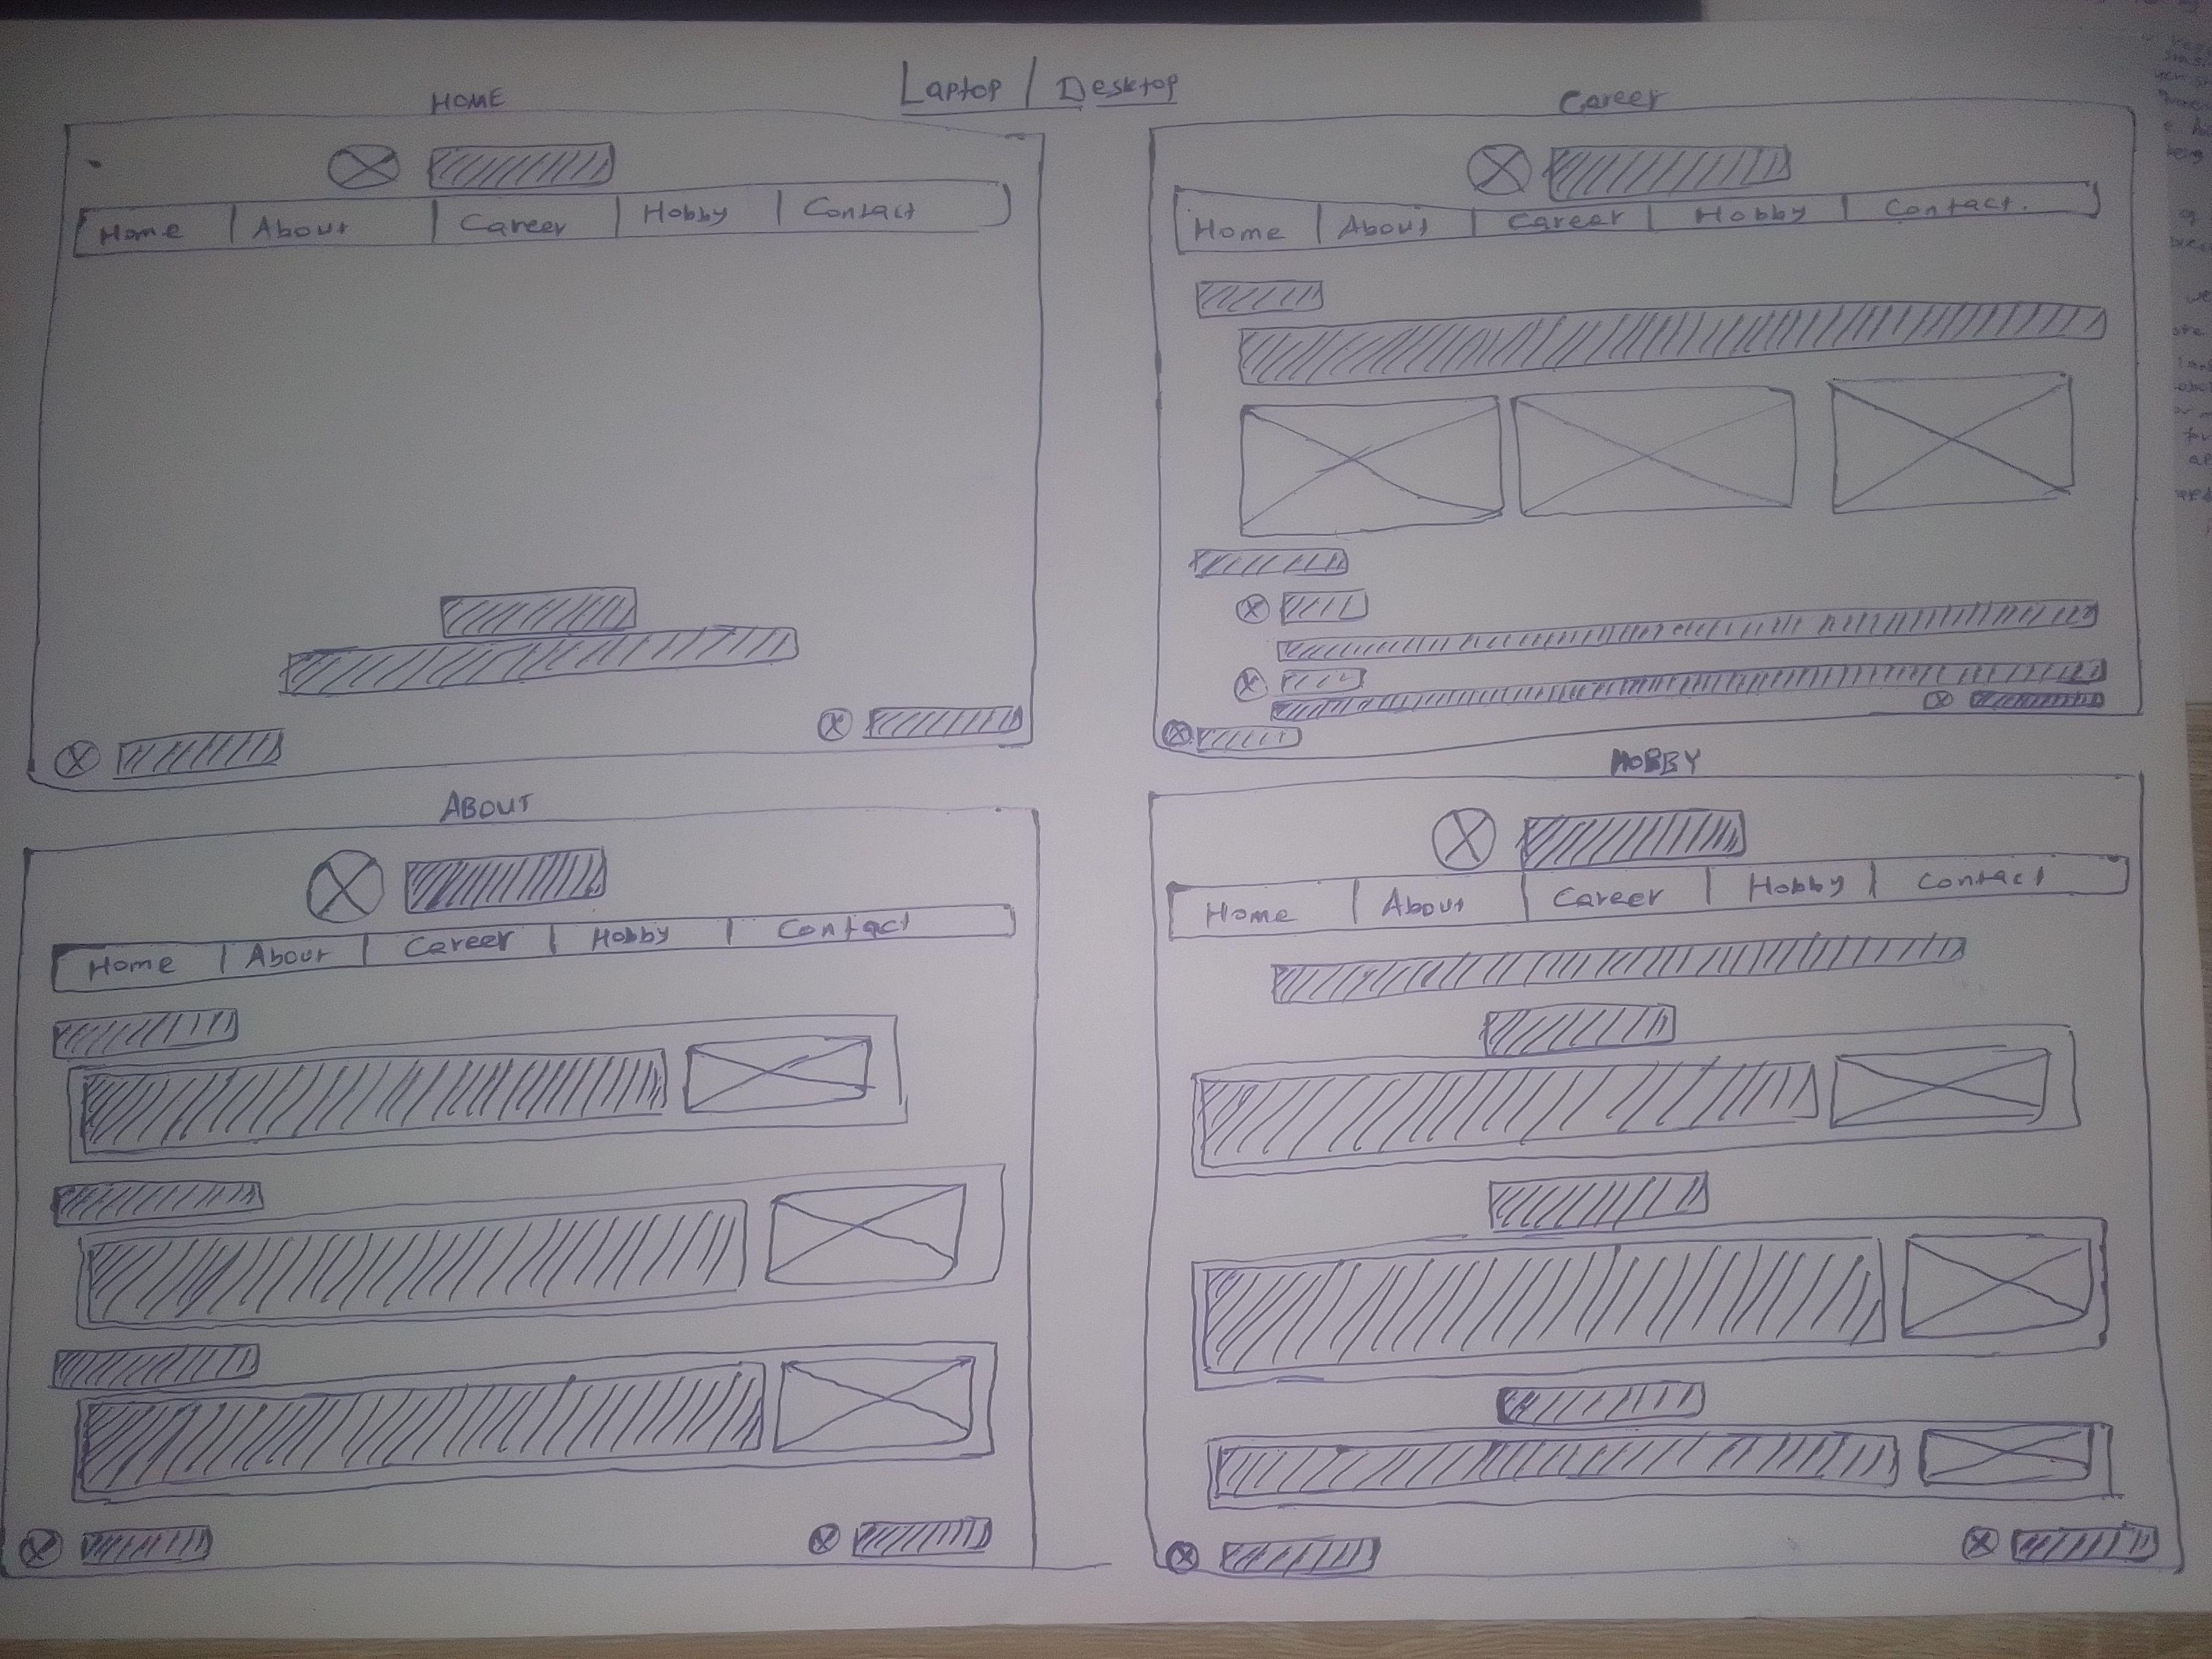 Laptop / Desktop
HOME
Home | About | Career | Hobby | Contact
Career
Home | About | Career | Hobby | Contact.
ABOUT
Home | About | Career | Hobby | Contact
HOBBY
Home | About | Career | Hobby | Contact